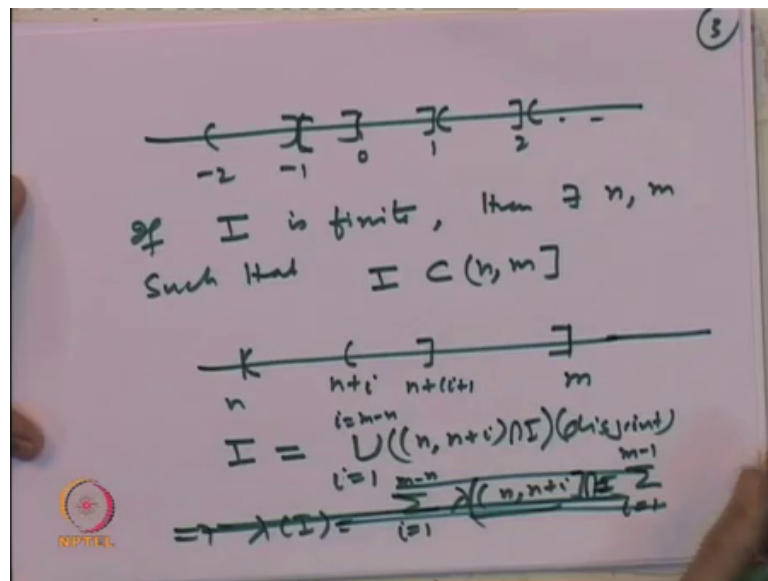 3
-2 -1 0 1 2 . -
If I is finite, then ∃ n, m
Such that I ⊂ (n, m]
n n+i n+(i+1 m
i=m-n
I = ∪((n, n+i)∩I)(disjoint)
i=1
m-n m-1
=> λ(I) = ∑ λ((n, n+i]∩I ∑
i=1 i=1
NPTEL